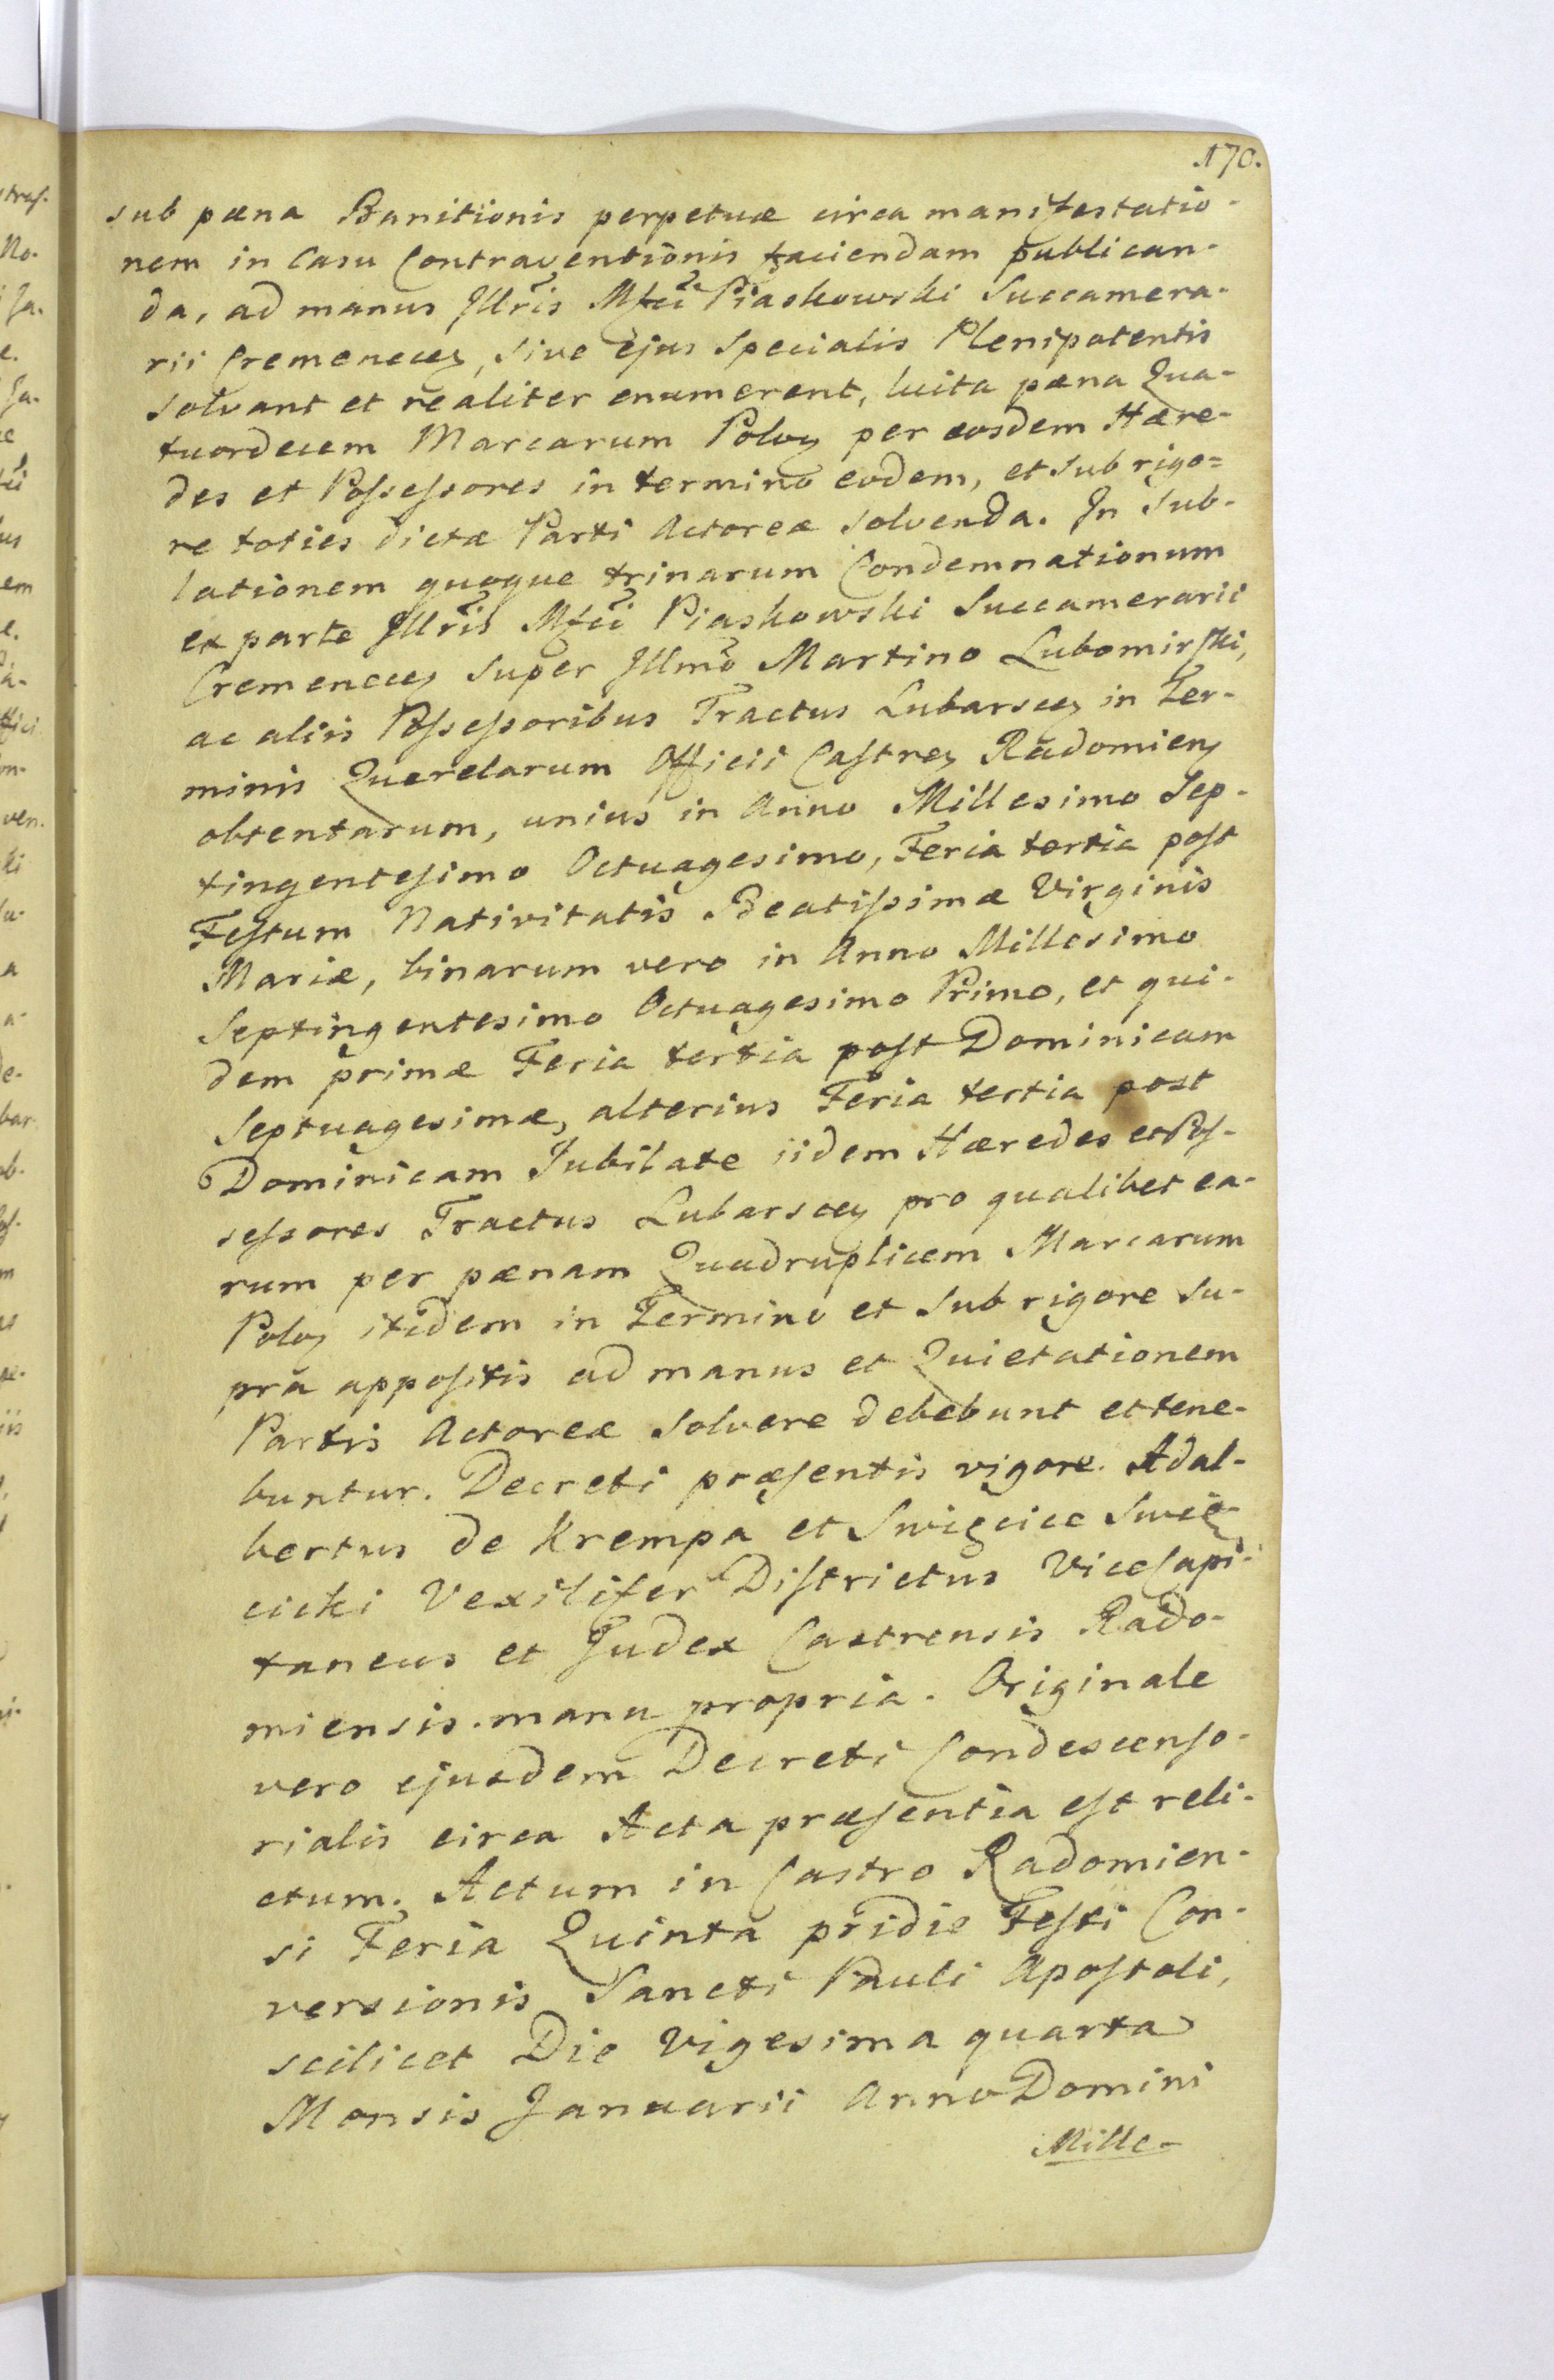 170.
sub pæna Banitionis perpetuæ circa manifestatio-
nem in Casu Contraventionis faciendam publican-
da, ad manus Illris Mfci Piaskowski Succamera-
rii Cremenecen, sive ejus Specialis Plenipotentis
solvant et realiter enumerent, luita pæna Qua-
tuordecem Marcarum Polon per eosdem Hære-
des et Possessores in termino eodem, et sub rigo=
re toties dictæ Parti Actoreæ solvenda. In Sub-
lationem quoque trinarum Condemnationum
ex parte Illris Mfci Piaskowski Succamerarii
Cremenecen super Illmo Martino Lubomirski,
ac aliis Possessoribus Tractus Lubarscen in Ter-
minis Querelarum Officii Castren Radomien
obtentarum, unius in Anno Millesimo Sep-
tingentesimo Octuagesimo, Feria tertia post
Festum Nativitatis Beatissimæ Virginis
Mariæ, binarum vero in Anno Millesimo
Septingentesimo Octuagesimo Primo, et qui-
dem primæ Feria tertia post Dominicam
Septuagesimæ, alterius Feria tertia post
Dominicam Jubilate iidem Hæredes et Pos-
sessores Tractus Lubarscen pro qualibet ea-
rum per pænam Quadruplicem Marcarum
Polon itidem in Termino et sub rigore su-
pra appositis ad manus et Quietationem
Partis Actoreæ solvere debebunt et tene-
buntur. Decreti præsentis vigore. Adal-
bertus de Krempa et Swięcice Swię-
cicki Vexilifer Districtus Vicesapi-
taneus et Judex Castrensis Rado-
miensis. manu propria. Originale
vero ejusdem Decreti Condescenso-
rialis circa Acta præsentia est reli-
ctum. Actum in Castro Radomien-
si Feria Quinta pridie Festi Con-
versionis Sancti Pauli Apostoli,
scilicet Die Vigesima quarta
Mensis Januarii Anno Domini
Mille-